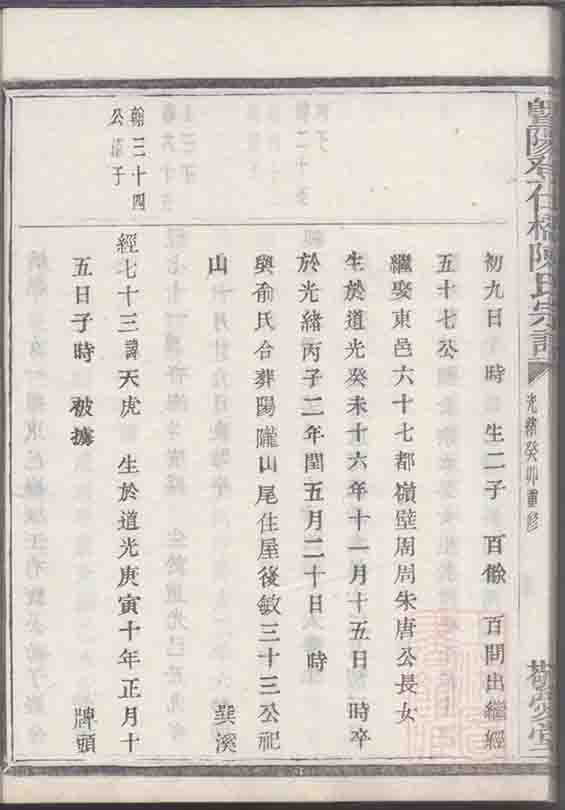 暨陽孝仁橋陳氏宗譜
光緒癸卯重修
敬愛堂
初九日 時 生二子 百餘 百間出繼經
五十七公
繼娶東邑六十七都嶺壁周周朱唐公長女
生於道光癸未十六年十一月十五日 時卒
於光緒丙子二年閏五月二十日 時
與俞氏合葬陽隴山尾住屋後敏三十三公祀
山 巽溪
翰三十四
公 子
經七十三諱天虎 生於道光庚寅十年正月十
五日子時 被擄 牌頭